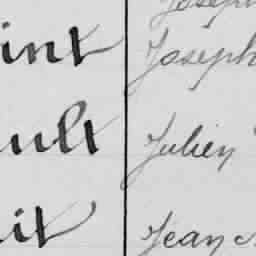 Joseph
int Joseph
ult Julien
it Jean